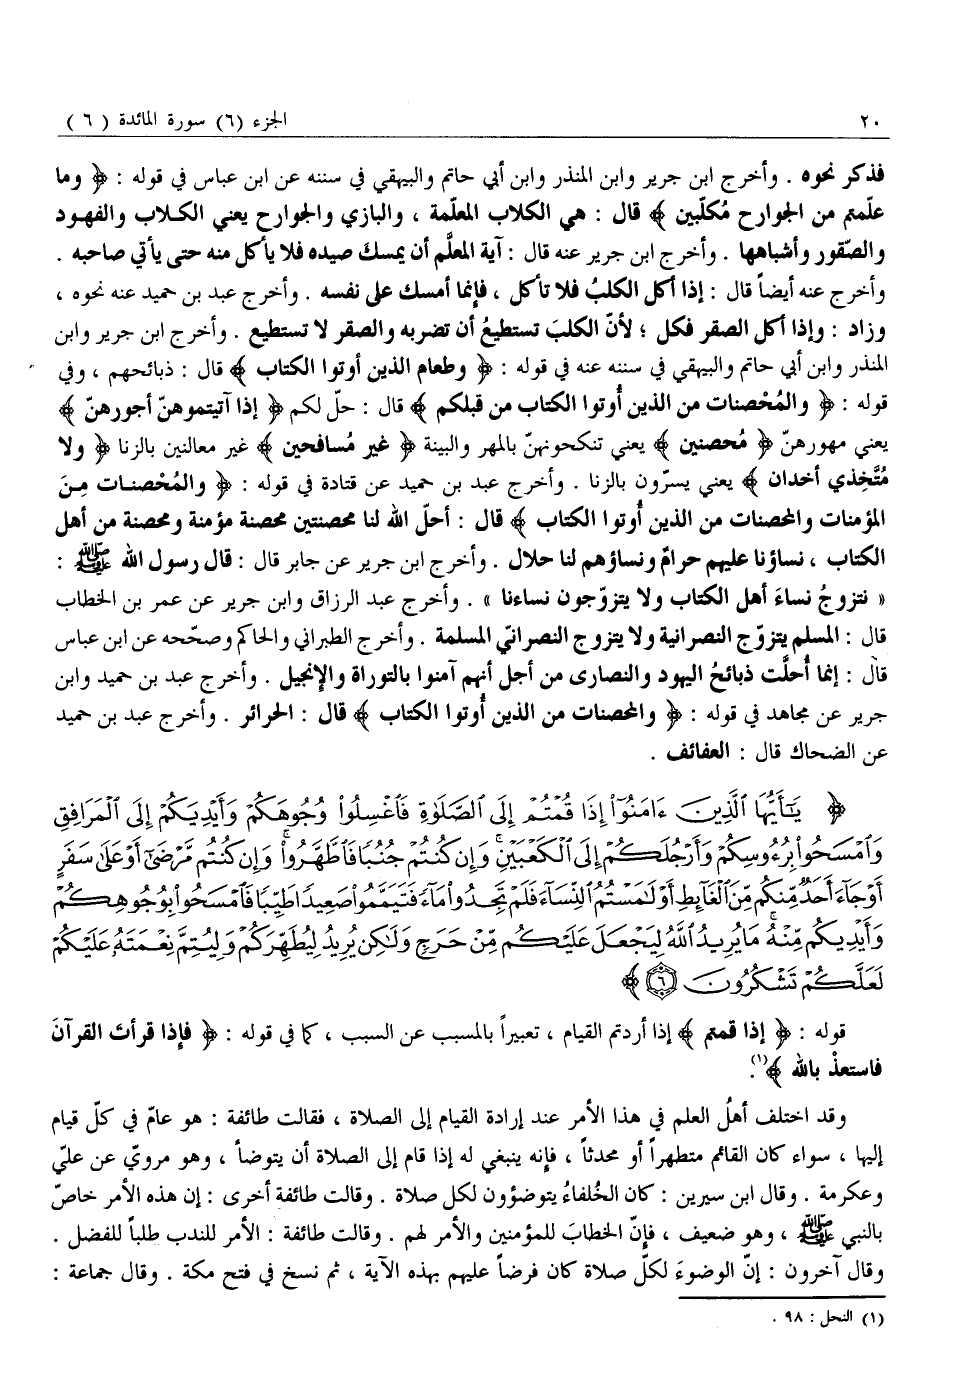 ٢٠ الجزء (٦) سورة المائدة ( ٦ )
فذكر نحوه . وأخرج ابن جرير وابن المنذر وابن أبي حاتم والبيهقي في سننه عن ابن عباس في قوله : ﴿ وما
علّمتم من الجوارح مُكلّبين ﴾ قال : هي الكلاب المعلّمة ، والبازي والجوارح يعني الكلاب والفهود
والصّقور وأشباهها . وأخرج ابن جرير عنه قال : آية المعلَّم أن يمسكَ صيده فلا يأكل منه حتى يأتي صاحبه .
وأخرج عنه أيضاً قال : إذا أكل الكلبُ فلا تأكل ، فإنما أمسك على نفسه . وأخرج عبد بن حميد عنه نحوه ،
وزاد : وإذا أكل الصقر فكل ؛ لأنّ الكلبَ تستطيعُ أن تضربه والصقر لا تستطيع . وأخرج ابن جرير وابن
المنذر وابن أبي حاتم والبيهقي في سننه عنه في قوله : ﴿ وطعام الذين أوتوا الكتاب ﴾ قال : ذبائحهم ، وفي
قوله : ﴿ والمُحْصنات من الذين أُوتوا الكتاب من قبلكم ﴾ قال : حلّ لكم ﴿ إذا آتيتموهنّ أجورهنّ ﴾
يعني مهورهنّ ﴿ مُحصنين ﴾ يعني تنكحونهنّ بالمهر والبينة ﴿ غير مُسافحين ﴾ غير معالنين بالزنا ﴿ ولا
مُتَّخِذي أخدان ﴾ يعني يسرّون بالزنا . وأخرج عبد بن حميد عن قتادة في قوله : ﴿ والمُحْصنات مِنَ
المؤمنات والمحصنات من الذين أُوتوا الكتاب ﴾ قال : أحلّ الله لنا محصنتين محصنة مؤمنة ومحصنة من أهل
الكتاب ، نساؤنا عليهم حرامٌ ونساؤهم لنا حلال . وأخرج ابن جرير عن جابر قال : قال رسول الله ﷺ :
« نتزوجُ نساءَ أهل الكتاب ولا يتزوّجون نساءنا » . وأخرج عبد الرزاق وابن جرير عن عمر بن الخطاب
قال : المسلم يتزوّج النصرانية ولا يتزوج النصرانيّ المسلمة . وأخرج الطبراني والحاكم وصحّحه عن ابن عباس
قال : إنما أُحلَّت ذبائحُ اليهود والنصارى من أجل أنهم آمنوا بالتوراة والإنجيل . وأخرج عبد بن حميد وابن
جرير عن مجاهد في قوله : ﴿ والمحصنات من الذين أُوتوا الكتاب ﴾ قال : الحرائر . وأخرج عبد بن حميد
عن الضحاك قال : العفائف .
﴿ يَٰٓأَيُّهَا ٱلَّذِينَ ءَامَنُوٓا۟ إِذَا قُمْتُمْ إِلَى ٱلصَّلَوٰةِ فَٱغْسِلُوا۟ وُجُوهَكُمْ وَأَيْدِيَكُمْ إِلَى ٱلْمَرَافِقِ
وَٱمْسَحُوا۟ بِرُءُوسِكُمْ وَأَرْجُلَكُمْ إِلَى ٱلْكَعْبَيْنِ ۚ وَإِن كُنتُمْ جُنُبًا فَٱطَّهَّرُوا۟ ۚ وَإِن كُنتُم مَّرْضَىٰٓ أَوْ عَلَىٰ سَفَرٍ
أَوْ جَآءَ أَحَدٌ مِّنكُم مِّنَ ٱلْغَآئِطِ أَوْ لَٰمَسْتُمُ ٱلنِّسَآءَ فَلَمْ تَجِدُوا۟ مَآءً فَتَيَمَّمُوا۟ صَعِيدًا طَيِّبًا فَٱمْسَحُوا۟ بِوُجُوهِكُمْ
وَأَيْدِيكُم مِّنْهُ ۚ مَا يُرِيدُ ٱللَّهُ لِيَجْعَلَ عَلَيْكُم مِّنْ حَرَجٍ وَلَٰكِن يُرِيدُ لِيُطَهِّرَكُمْ وَلِيُتِمَّ نِعْمَتَهُۥ عَلَيْكُمْ
لَعَلَّكُمْ تَشْكُرُونَ ٦ ﴾
قوله : ﴿ إذا قمتم ﴾ إذا أردتم القيام ، تعبيراً بالمسبب عن السبب ، كما في قوله : ﴿ فإذا قرأتَ القرآنَ
فاستعذْ بالله ﴾(١).
وقد اختلف أهلُ العلم في هذا الأمر عند إرادة القيام إلى الصلاة ، فقالت طائفة : هو عامّ في كلّ قيام
إليها ، سواء كان القائم متطهراً أو محدثاً ، فإنه ينبغي له إذا قام إلى الصلاة أن يتوضأ ، وهو مرويّ عن عليّ
وعكرمة . وقال ابن سيرين : كان الخُلفاءُ يتوضؤون لكل صلاة . وقالت طائفة أخرى : إن هذه الأمر خاصّ
بالنبي ﷺ ، وهو ضعيف ، فإنّ الخطابَ للمؤمنين والأمر لهم . وقالت طائفة : الأمر للندب طلباً للفضل .
وقال آخرون : إنّ الوضوءَ لكلّ صلاة كان فرضاً عليهم بهذه الآية ، ثم نسخ في فتح مكة . وقال جماعة :
(١) النحل : ٩٨ .